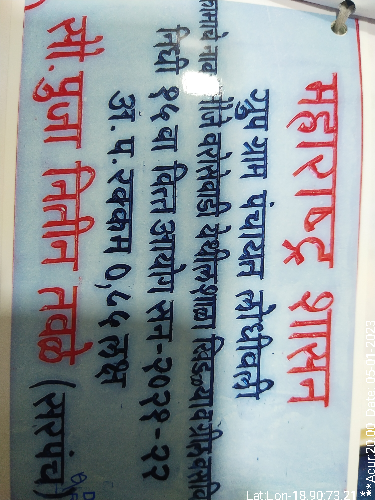 महाराष्ट्र शासन
ग्रुप ग्राम पंचायत लोधीवली
कामाचे नाव मौजे वरोसेवाडी येथील शाळा खिडक्यांना ग्रील बसविणे
निधी १५ वा वित्त आयोग सन-२०२१-२२
अ. प. रक्कम ०,५५ लक्ष
सौ पुजा नितीन तवळे (सरपंच)
Lat Lon-18.90:73.21
***Acur:20.00, Date: 05-01-2023